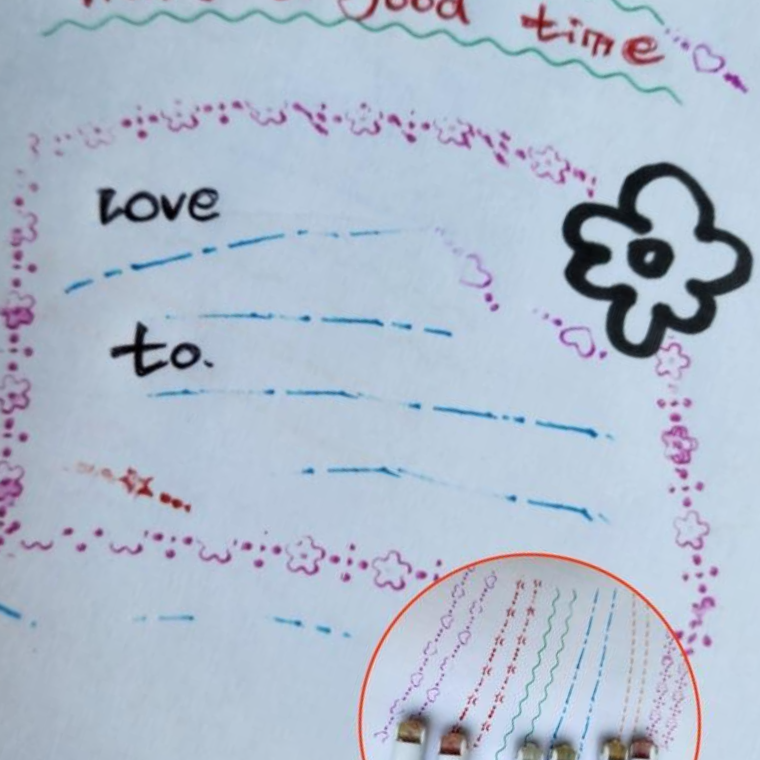 good time
Love
to.